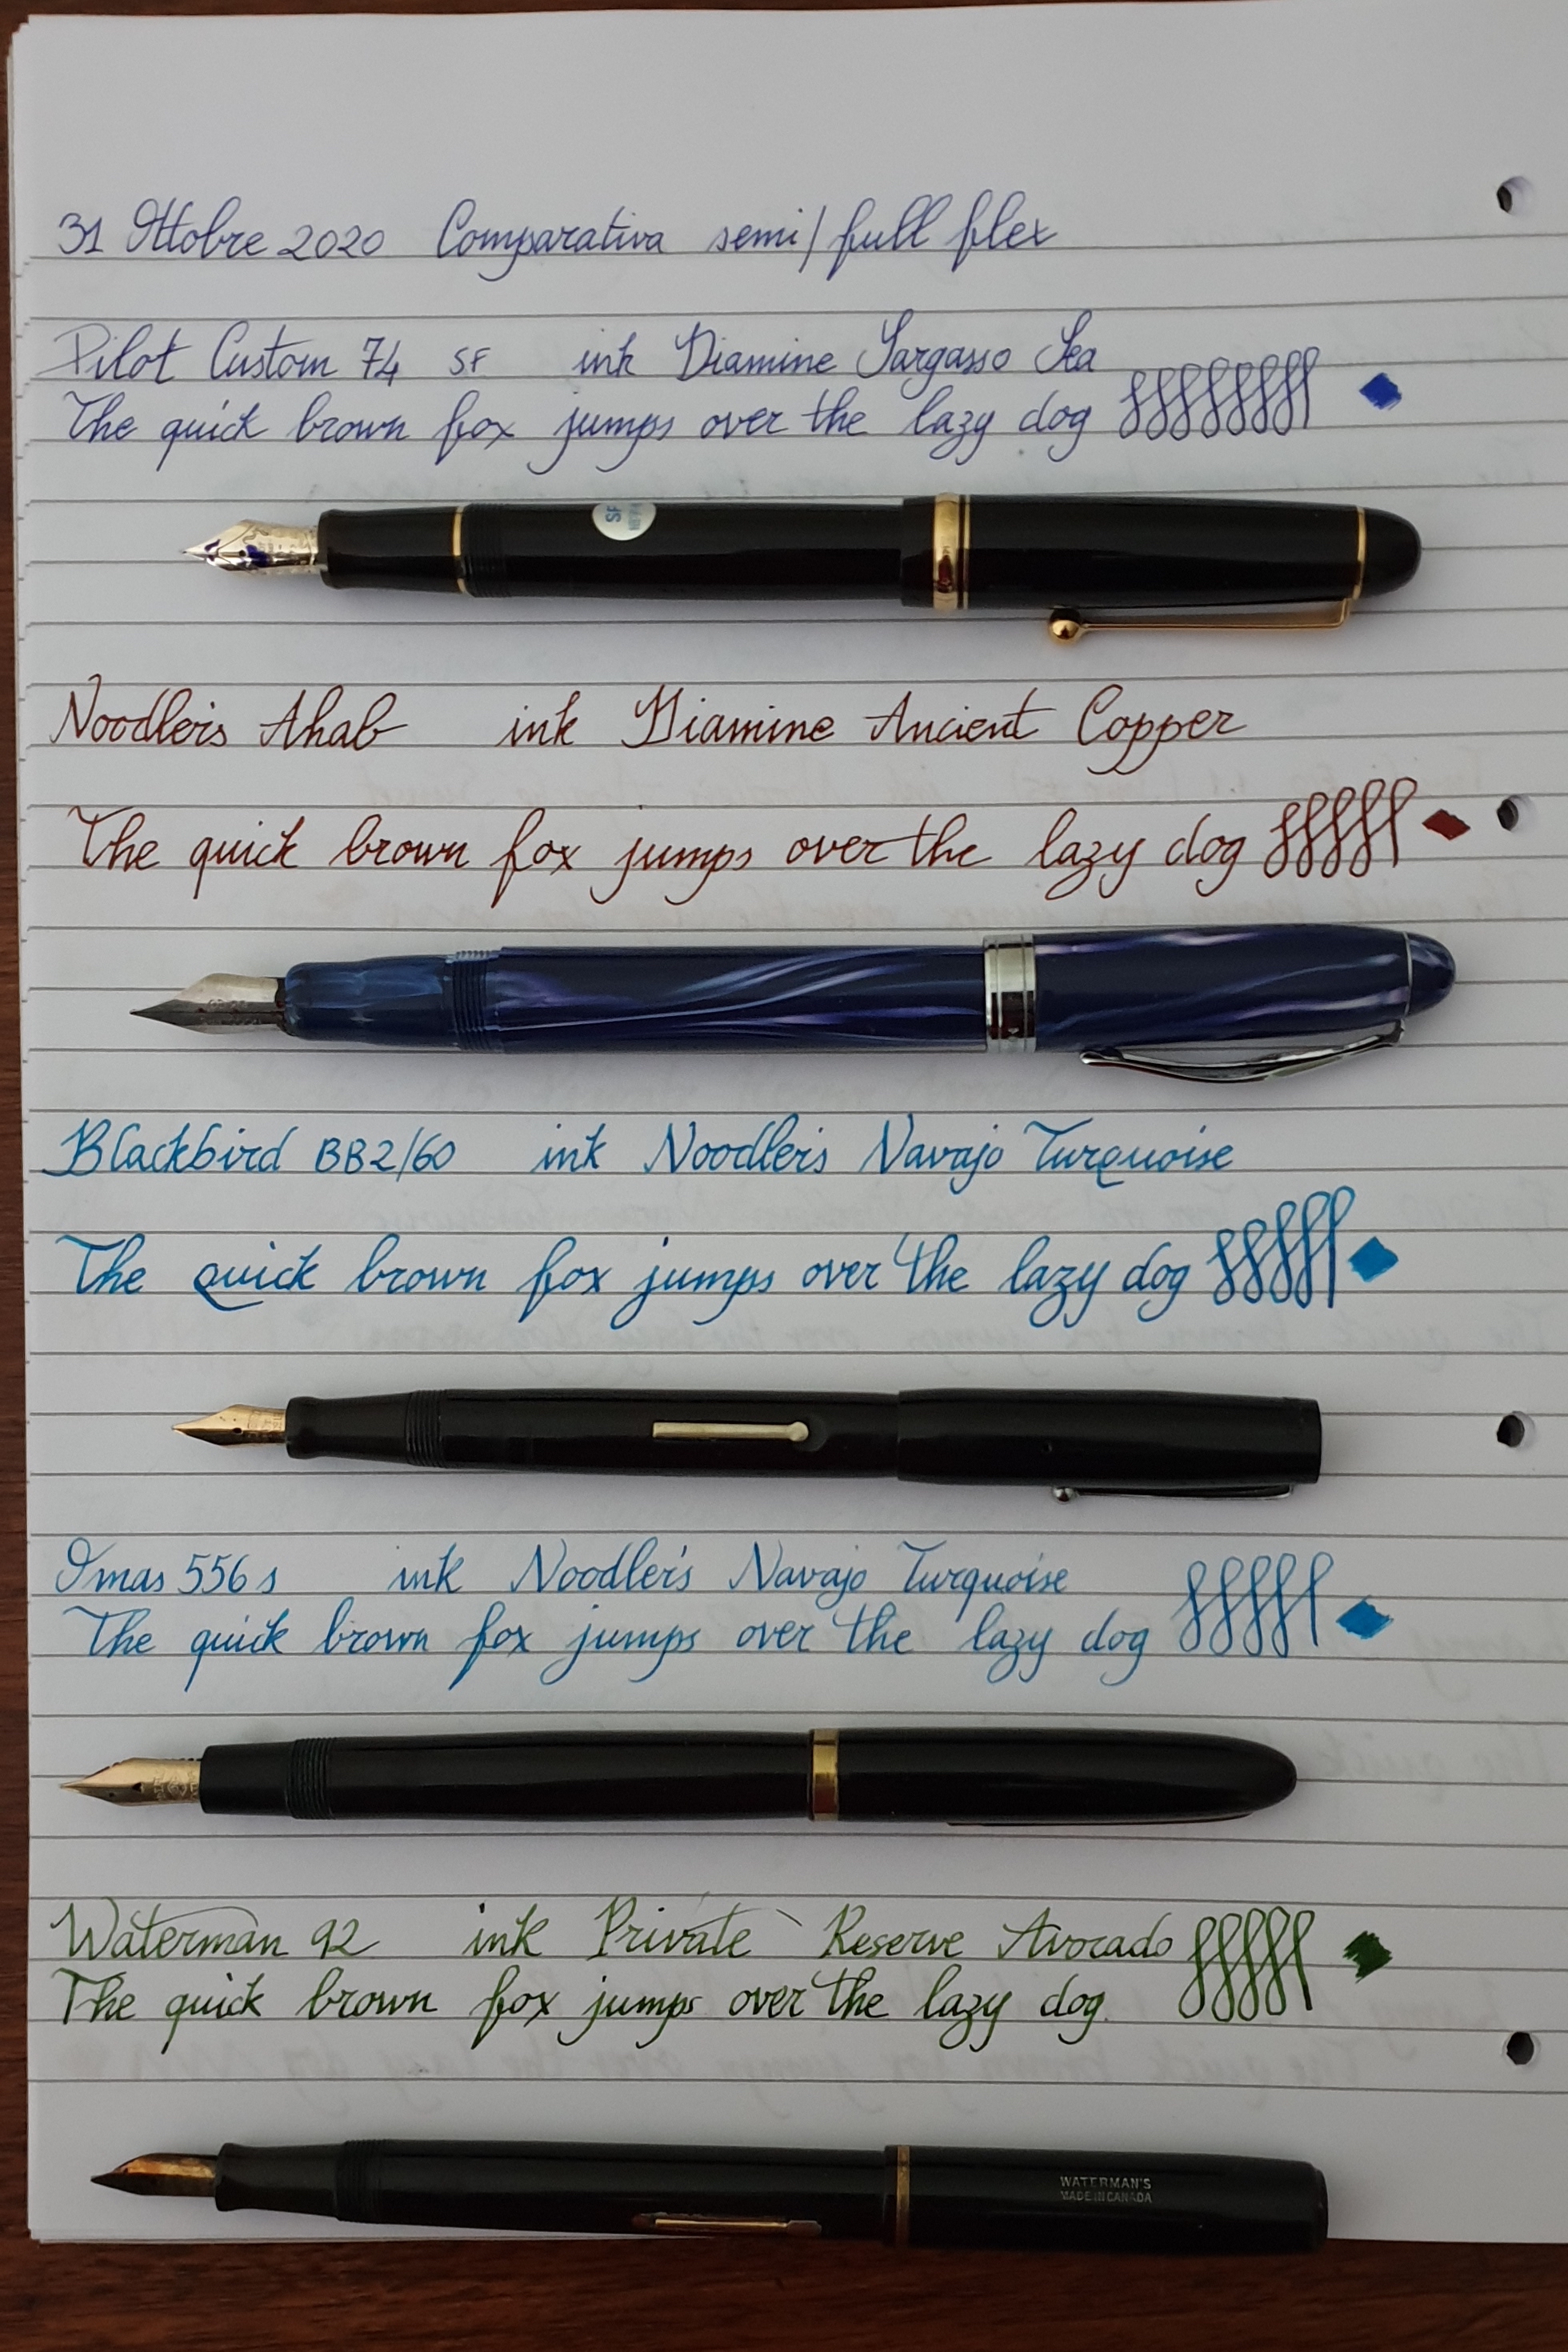 31 Ottobre 2020 Comparativa semi/full flex
Pilot Custom 74 SF ink Diamine Sargasso Sea
The quick brown fox jumps over the lazy dog
SF
Noodler's Ahab ink Diamine Ancient Copper
The quick brown fox jumps over the lazy dog
Blackbird BB2/60 ink Noodler's Navajo Turquoise
The quick brown fox jumps over the lazy dog
Imas 556 s ink Noodler's Navajo Turquoise
The quick brown fox jumps over the lazy dog
Waterman 92 ink Private Reserve Avocado
The quick brown fox jumps over the lazy dog.
WATERMAN'S
MADE IN CANADA